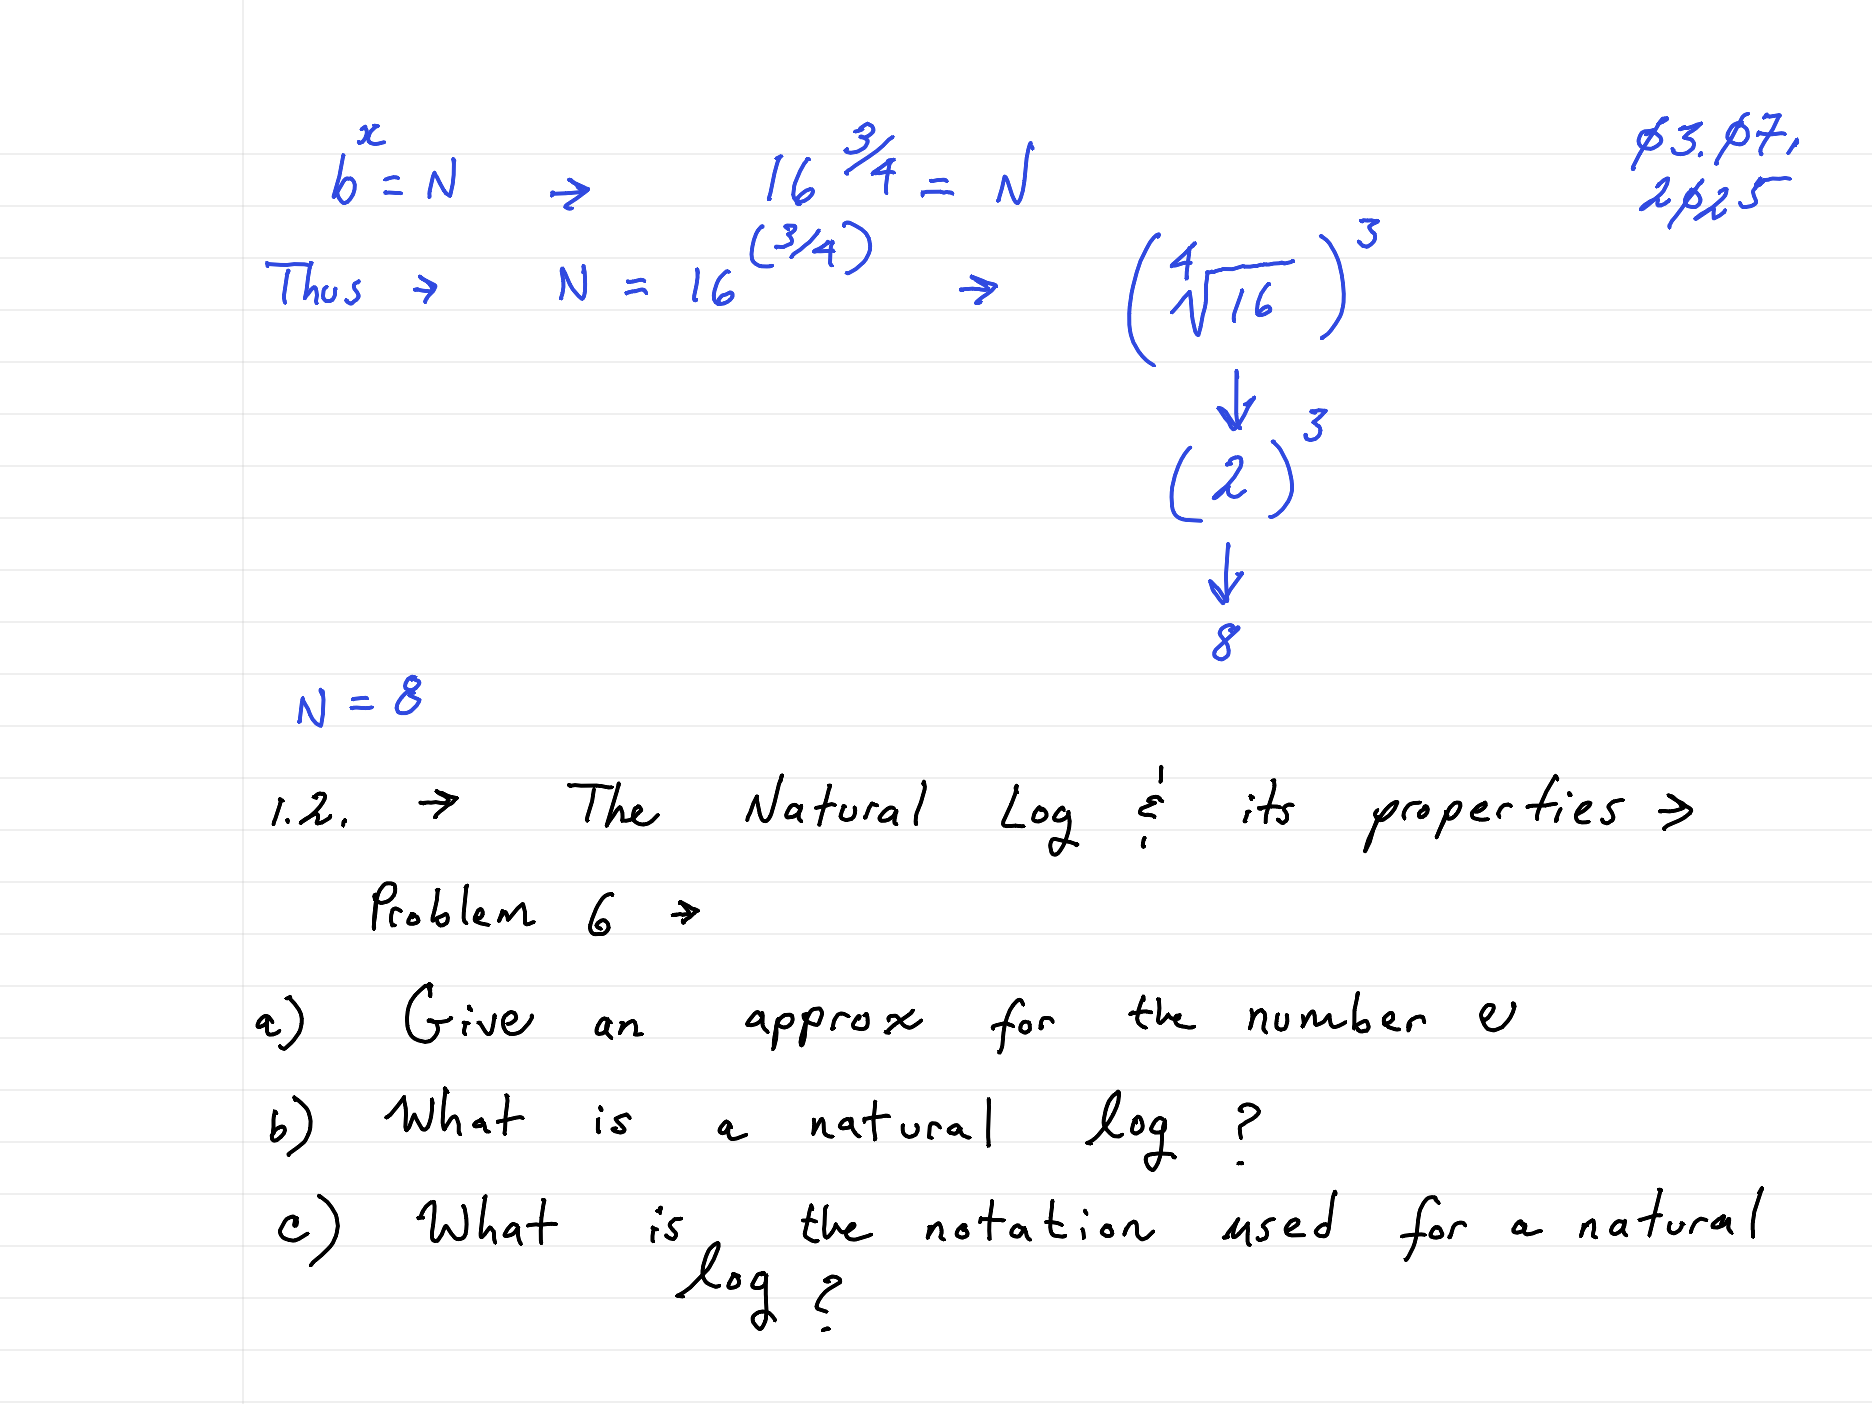 b^x = N → 16^3/4 = N
ø3.ø7.
2ø25
Thus → N = 16^(3/4) → (∜16)^3
↓
(2)^3
↓
8
N = 8
1.2. → The Natural Log & its properties →
Problem 6 →
a) Give an approx for the number e
b) What is a natural log ?
c) What is the notation used for a natural
log ?